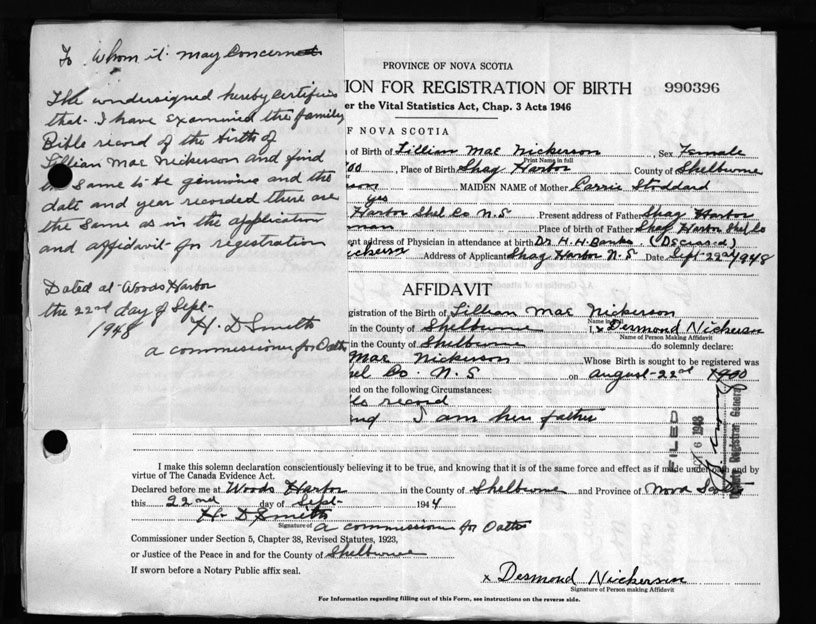 To Whom it may Concern
The undersigned hereby certifies
that I have examined the family
Bible record of the birth of
Lillian Mae Nickerson and find
the same to be genuine and the
date and year recorded there are
the same as in the application
and affidavit for registration
Dated at Woods Harbor
the 22nd day of Sept-
1948 H. D Smith
a commissioner for Oaths
PROVINCE OF NOVA SCOTIA
ION FOR REGISTRATION OF BIRTH 990396
er the Vital Statistics Act, Chap. 3 Acts 1946
F NOVA SCOTIA
of Birth of Lillian Mae Nickerson, Sex Female
Print Name in full
00, Place of Birth Shag Harbor County of Shelburne
erson MAIDEN NAME of Mother Carrie Stoddard
yes
Harbor Shel Co N.S Present address of Father Shag Harbor
man Place of birth of Father Shag Harbor Shel Co
ent address of Physician in attendance at birth Dr. H. H. Banks. (Deceased)
ickerson Address of Applicant Shag Harbor N.S. Date Sept-22nd 1948
AFFIDAVIT
egistration of the Birth of Lillian Mae Nickerson
Name in full
in the County of Shelburne I, x Desmond Nickerson
Name of Person Making Affidavit
in the County of Shelburne do solemnly declare:
Mae Nickerson Whose Birth is sought to be registered was
hel Co. N.S on august-22nd 1900
ed on the following Circumstances:
record
and I am her father
FILED
6 1948
Registrar General
I make this solemn declaration conscientiously believing it to be true, and knowing that it is of the same force and effect as if made under oath and by
virtue of The Canada Evidence Act.
Declared before me at Woods Harbor in the County of Shelburne and Province of Nova Scotia
this 22nd day of Sept- 194
H. D Smith
Signature of a commissioner for Oaths
Commissioner under Section 5, Chapter 38, Revised Statutes, 1923,
or Justice of the Peace in and for the County of Shelburne
If sworn before a Notary Public affix seal.
x Desmond Nickerson
Signature of Person making Affidavit
For Information regarding filling out of this Form, see instructions on the reverse side.